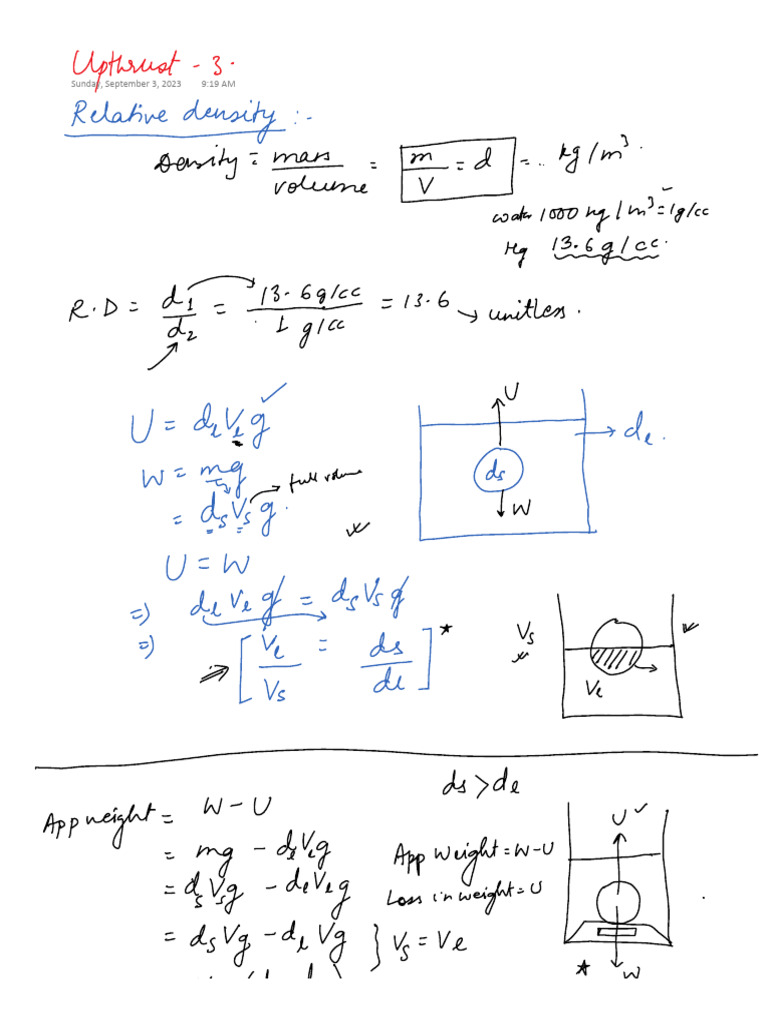 Upthrust - 3.
Sunday, September 3, 2023 9:19 AM
Relative density :-
Density = mass/volume = m/V = d = .. kg/m³.
water 1000 kg/m³ = 1g/cc
Hg 13.6 g/cc.
R.D = d₁/d₂ = 13.6g/cc / 1 g/cc = 13.6 → unitless.
U = dₗVₗg ✓
U
→ dₗ.
ds
W
W = mg
→ full volume
= dₛVₛg.
U = W
=) dₗVₗg = dₛVₛg
=) ⇒ [Vₗ/Vₛ = ds/dl] *
Vₛ
Vₗ
ds > dₗ
App weight = W - U
= mg - dₗVₗg
App Weight = W-U
U ✓
= dₛVₛg - dₗVₗg
Loss in weight = U
= dₛVg - dₗVg } Vₛ = Vₗ
W